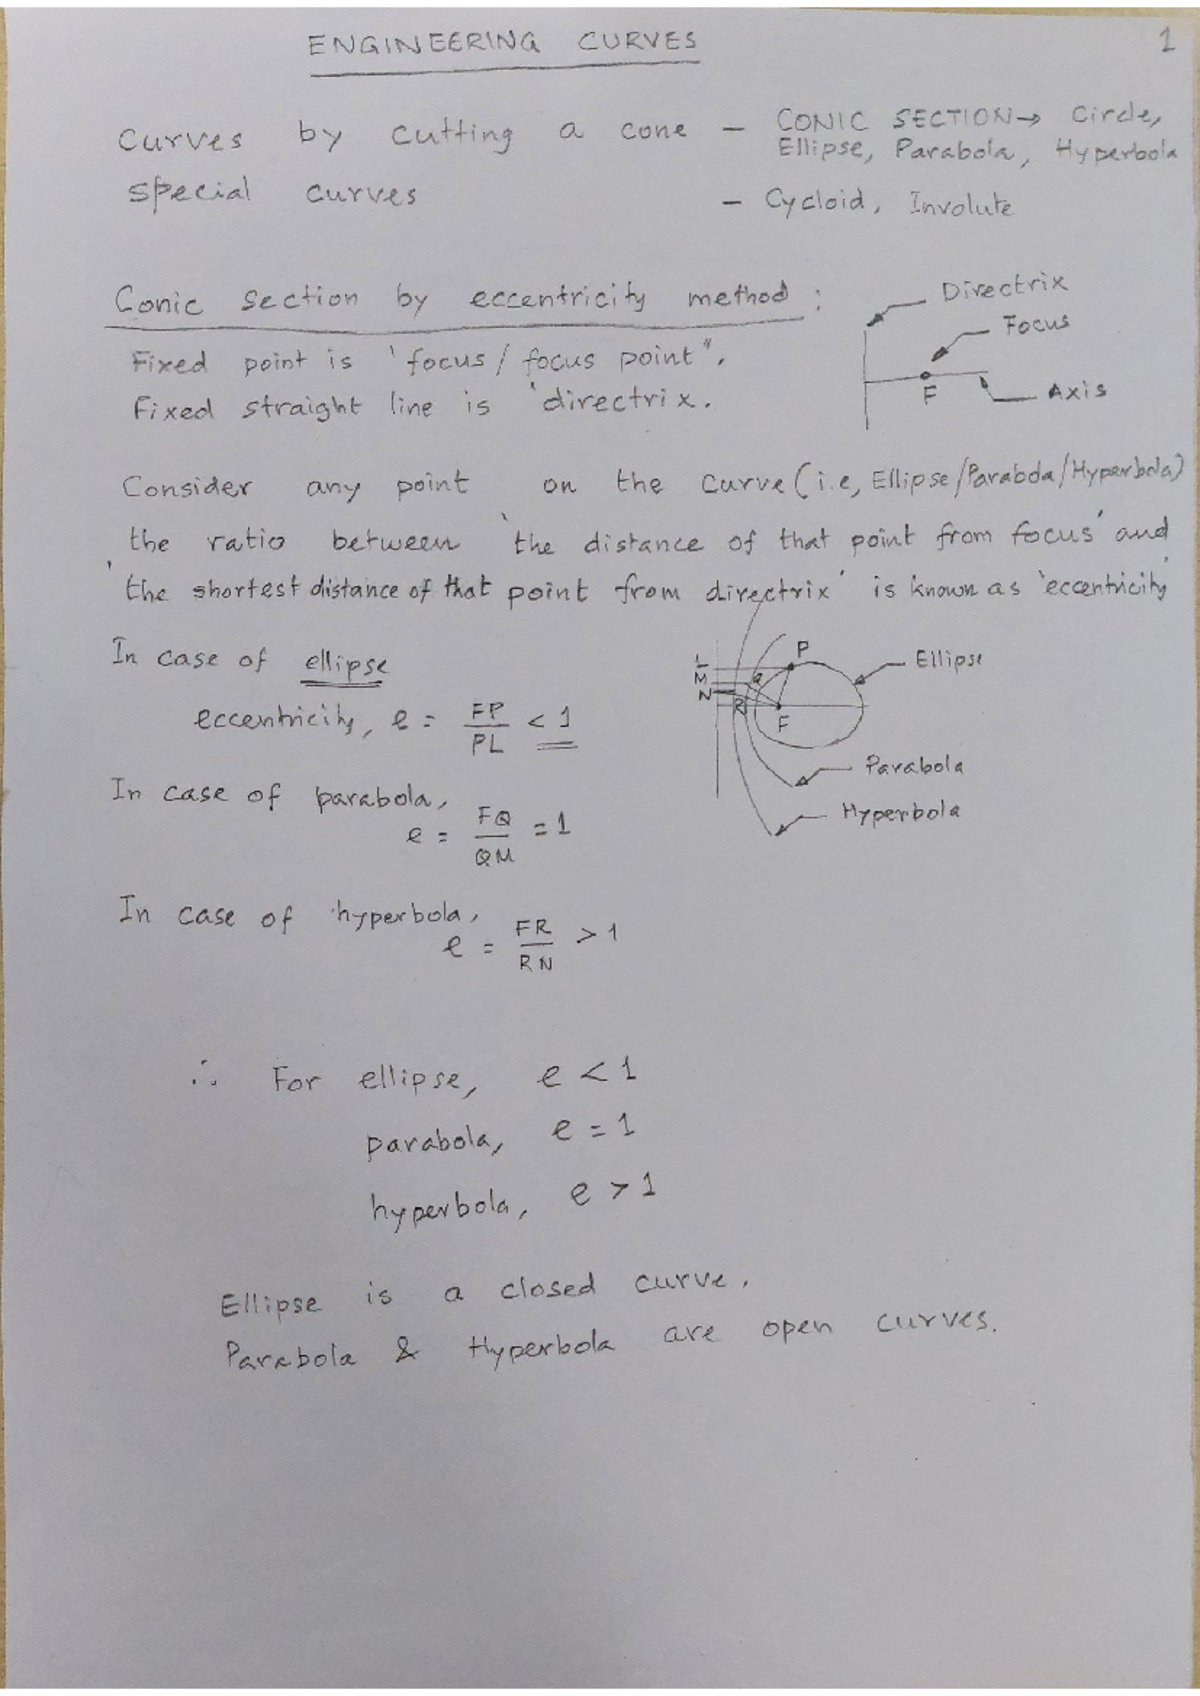 ENGINEERING CURVES
1
Curves by cutting a cone – CONIC SECTION→ Circle,
Ellipse, Parabola, Hyperbola
special curves – Cycloid, Involute
Conic section by eccentricity method :
Directrix
Focus
F
Axis
Fixed point is 'focus/ focus point".
Fixed straight line is 'directrix.
Consider any point on the curve (i.e, Ellipse/Parabola/Hyperbola)
the ratio between 'the distance of that point from focus' and
'the shortest distance of that point from directrix' is known as 'eccentricity'
In case of ellipse
eccentricity, e = FP/PL < 1
L
M
N
P
Q
R
F
Ellipse
Parabola
Hyperbola
In case of parabola,
e = FQ/QM = 1
In case of hyperbola,
e = FR/RN > 1
∴ For ellipse, e < 1
parabola, e = 1
hyperbola, e > 1
Ellipse is a closed curve.
Parabola & Hyperbola are open curves.